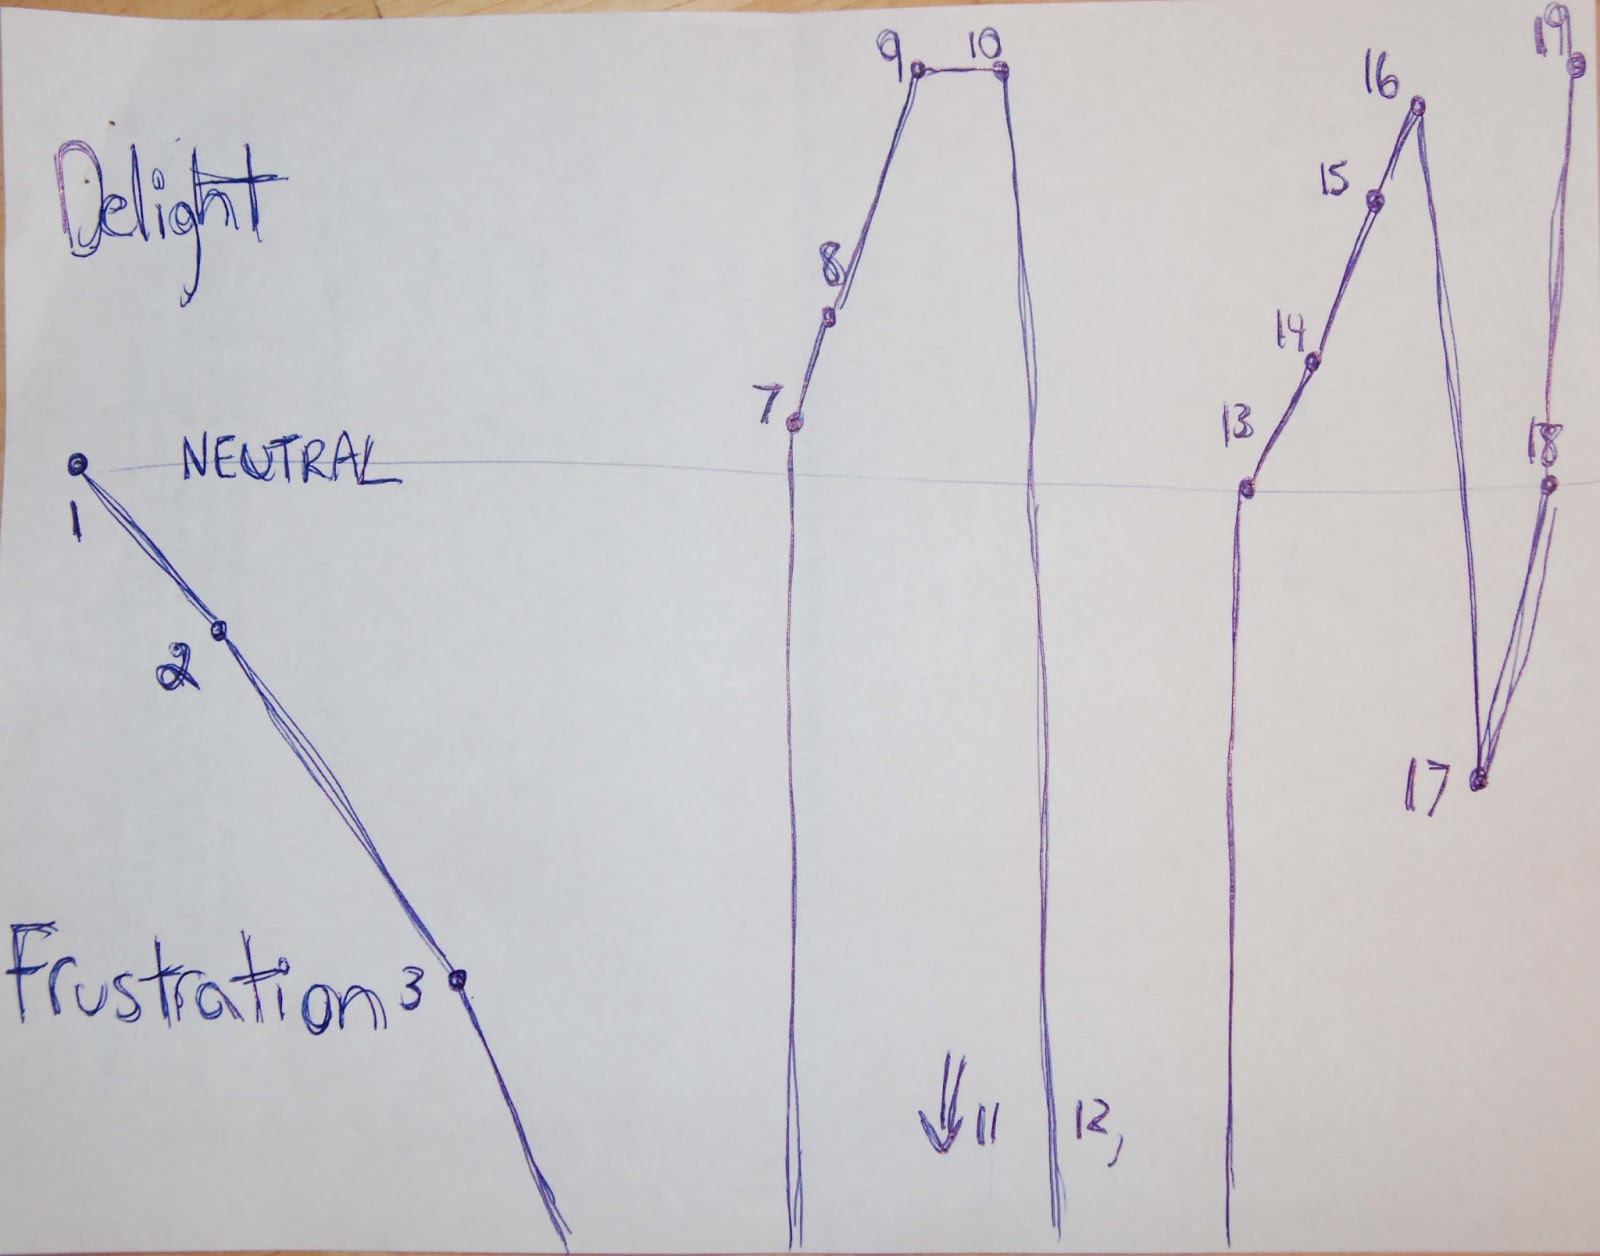 Delight
NEUTRAL
Frustration
1
2
3
7
8
9
10
11
12,
13
14
15
16
17
18
19